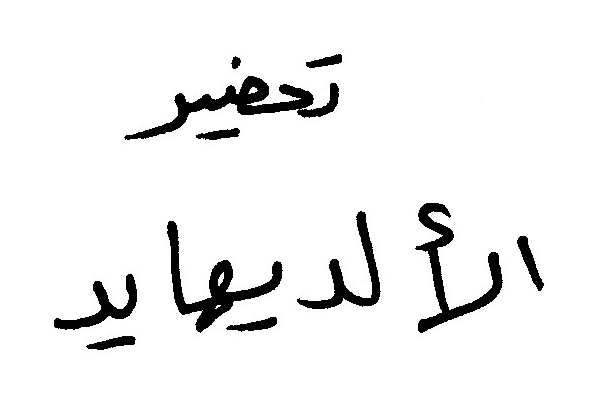 تحضير
الألديهايد